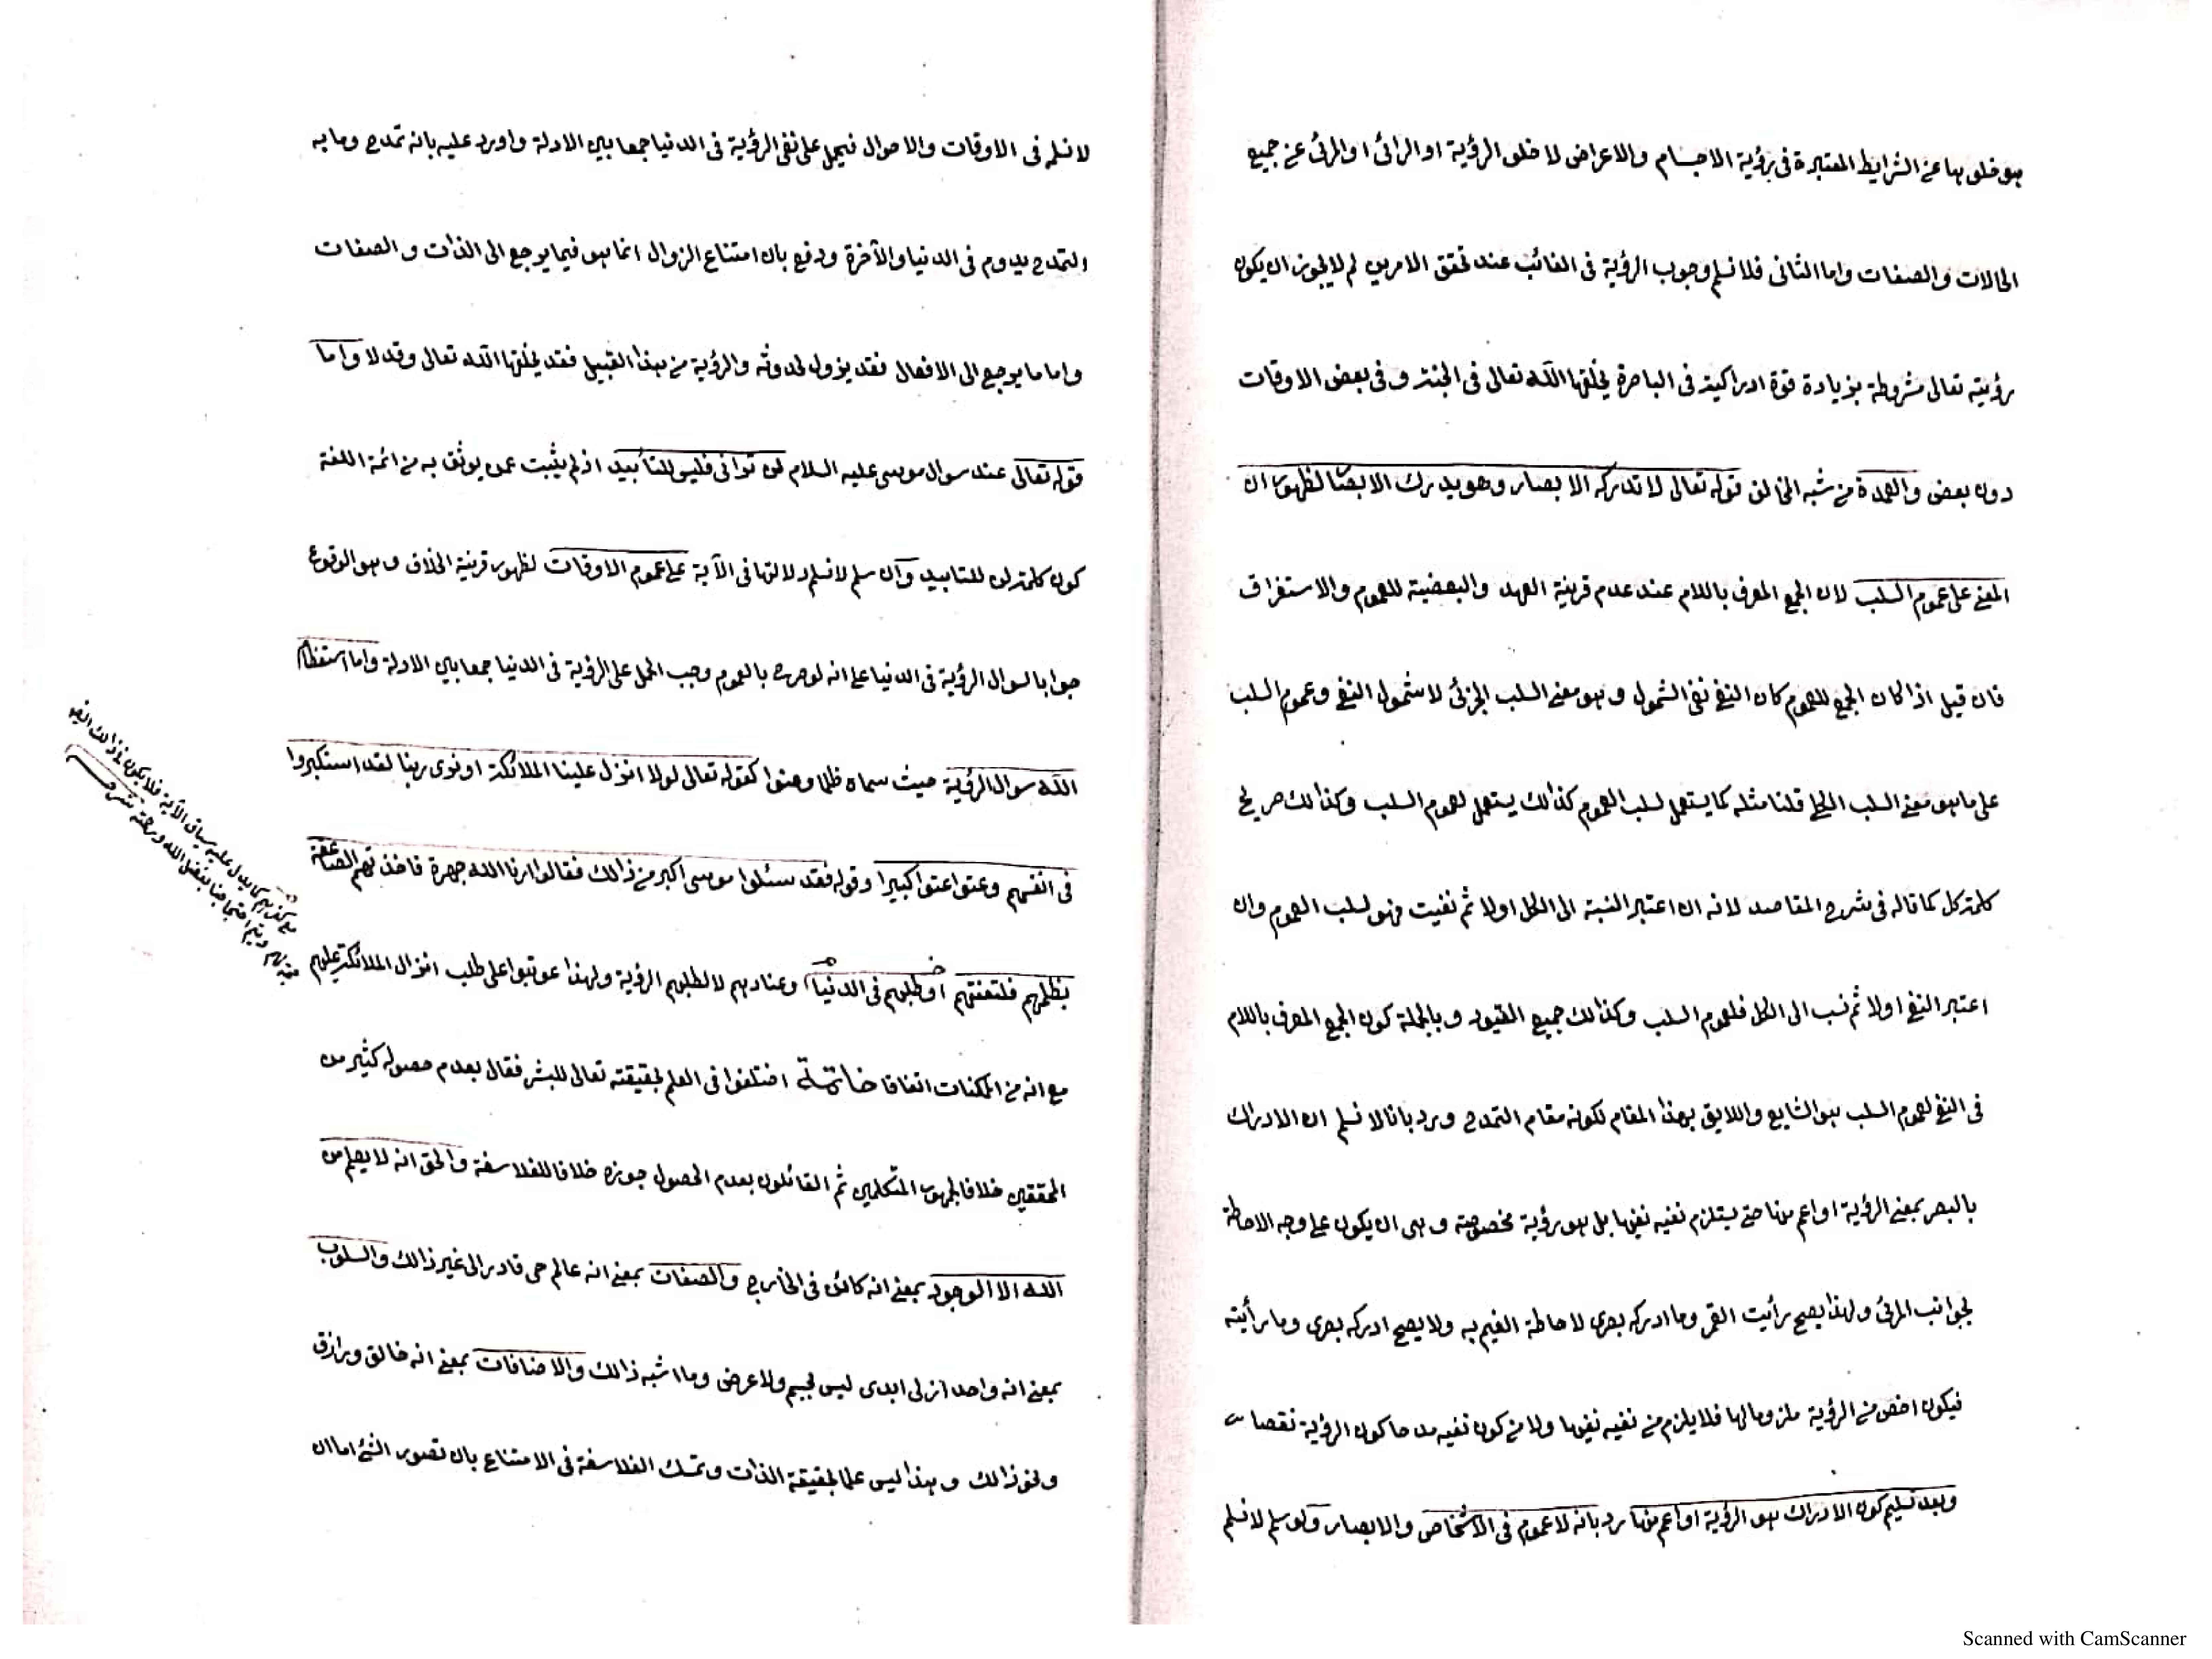 هو خلوها عن الشرايط المعتبرة فى رؤية الاجسام والاعراض لا خلو الرؤية او الرائى او المرئى عن جميع
الحالات والصفات واما الثانى فلا نسلم وجوب الرؤية فى الغائب عند تحقق الامرين لم لا يجوز ان يكون
رؤيته تعالى مشروطة بزيادة قوة ادراكية فى الباصرة يخلقها الله تعالى فى الجنة و فى بعض الاوقات
دون بعض والعمدة من شبه المخالف قوله تعالى لا تدركه الابصار وهو يدرك الابصار لظهور ان
المعنى على عموم السلب لان الجمع المعرف باللام عند عدم قرينة العهد والبعضية للعموم والاستغراق
فان قيل اذا كان الجمع للعموم كان النفى نفى الشمول و هو معنى السلب الجزئى لا شمول النفى وعموم السلب
على ما هو معنى السلب الكلى قلنا مثله كما يستعمل لسلب العموم كذالك يستعمل لعموم السلب وكذالك صريح
كلمة كل كما قاله فى شرح المقاصد لانه ان اعتبر النسبة الى الكل اولا ثم نفيت فهو لسلب العموم وان
اعتبر النفى اولا ثم نسب الى الكل فلعموم السلب وكذالك جميع القيود و بالجملة كون الجمع المعرف باللام
فى النفى لعموم السلب هو الشايع واللايق بهذا المقام لكونه مقام التمدح ورد بانا لا نسلم ان الادراك
بالبصر بمعنى الرؤية او اعم منها حتى يستلزم نفيه نفيها بل هو رؤية مخصوصة و هى ان يكون على وجه الاحاطة
بجوانب المرئى ولهذا يصح رأيت القمر وما ادركه بصرى لاحاطة الغيم به ولا يصح ادركه بصرى وما رأيته
فيكون اخص من الرؤية ملزوما لها فلا يلزم من نفيه نفيها ولا من كون نفيه مدحا كون الرؤية نقصا
وبعد تسليم كون الادراك هو الرؤية او اعم منها رد بانه لا عموم فى الاشخاص والابصار ولو سلم لا نسلم
لا نسلم فى الاوقات والاحوال فيحمل على نفى الرؤية فى الدنيا جمعا بين الادلة واورد عليه بانه تمدح وما به
التمدح يدوم فى الدنيا والآخرة ودفع بان امتناع الزوال انما هو فيما يرجع الى الذات و الصفات
واما ما يرجع الى الافعال فقد يزول لحدوثه والرؤية من هذا القبيل فقد يخلقها الله تعالى وقد لا واما
قوله تعالى عند سوال موسى عليه السلام لن ترانى فليس للتأبيد اذ لم يثبت عمن يوثق به من ائمة اللغة
كون كلمة لن للتابيد وان سلم لا نسلم دلالتها فى الآية على عموم الاوقات لظهور قرينة الخلاف و هو الوقوع
جوابا لسوال الرؤية فى الدنيا على انه لو صرح بالعموم وجب الحمل على الرؤية فى الدنيا جمعا بين الادلة واما استعظام
الله سوال الرؤية حيث سماه ظلما وعتوا كقوله تعالى لولا انزل علينا الملائكة او نرى ربنا لقد استكبروا
فى انفسهم وعتوا عتوا كبيرا وقوله فقد سئلوا موسى اكبر من ذالك فقالوا ارنا الله جهرة فاخذتهم الصاعقة
بظلمهم فلتعنتهم او طلبهم فى الدنيا وعنادهم لا لطلبهم الرؤية ولهذا عوتبوا على طلب انزال الملائكة عليهم
مع انه من الممكنات اتفاقا خاتمة اختلفوا فى العلم بحقيقته تعالى للبشر فقال بعدم حصوله كثير من
المحققين خلافا لجمهور المتكلمين ثم القائلون بعدم الحصول جوزه خلافا للفلاسفة والحق انه لا يعلم من
الله الا الوجود بمعنى انه كائن فى الخارج والصفات بمعنى انه عالم حى قادر الى غير ذالك والسلوب
بمعنى انه واحد ازلى ابدى ليس بجسم ولا عرض وما اشبه ذالك والاضافات بمعنى انه خالق ورازق
ونحو ذالك و هذا ليس علما بحقيقة الذات و تمسك الفلاسفة فى الامتناع بان تصور الشئ اما ان
كما يدل عليه سياق الآية فلا يكون